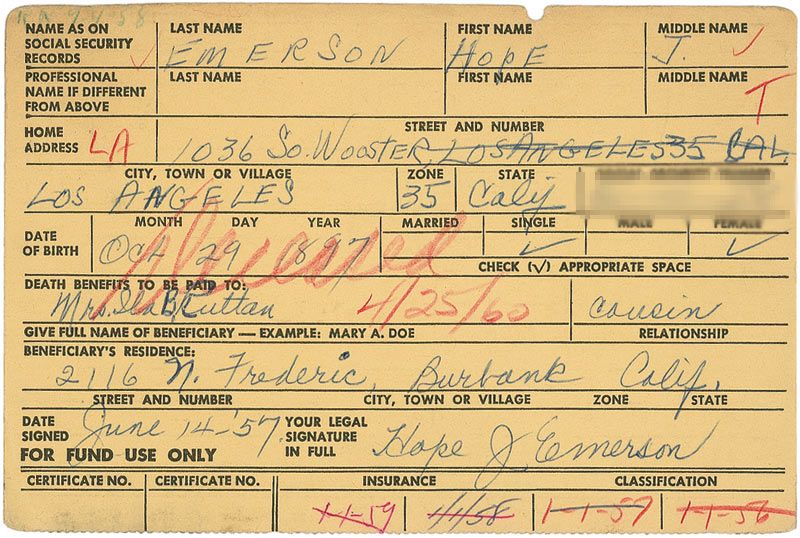 NAME AS ON SOCIAL SECURITY RECORDS LAST NAME EMERSON FIRST NAME HOPE MIDDLE NAME J.
PROFESSIONAL NAME IF DIFFERENT FROM ABOVE LAST NAME FIRST NAME MIDDLE NAME T
HOME ADDRESS LA STREET AND NUMBER 1036 So. WOOSTER, LOS ANGELES 35 CAL
CITY, TOWN OR VILLAGE ZONE STATE
LOS ANGELES 35 Calif
DATE OF BIRTH MONTH DAY YEAR MARRIED SINGLE MALE FEMALE
Oct 29 1897 ✓ ✓
CHECK (✓) APPROPRIATE SPACE
Deceased 4/25/60
DEATH BENEFITS TO BE PAID TO:
Mrs. Ila B Ruttan cousin
GIVE FULL NAME OF BENEFICIARY — EXAMPLE: MARY A. DOE RELATIONSHIP
BENEFICIARY'S RESIDENCE:
2116 N. Frederic, Burbank Calif.
STREET AND NUMBER CITY, TOWN OR VILLAGE ZONE STATE
DATE SIGNED June 14-'57 YOUR LEGAL SIGNATURE IN FULL Hope J. Emerson
FOR FUND USE ONLY
CERTIFICATE NO. CERTIFICATE NO. INSURANCE CLASSIFICATION
1-1-59 1/1/58 1-1-57 1-1-56